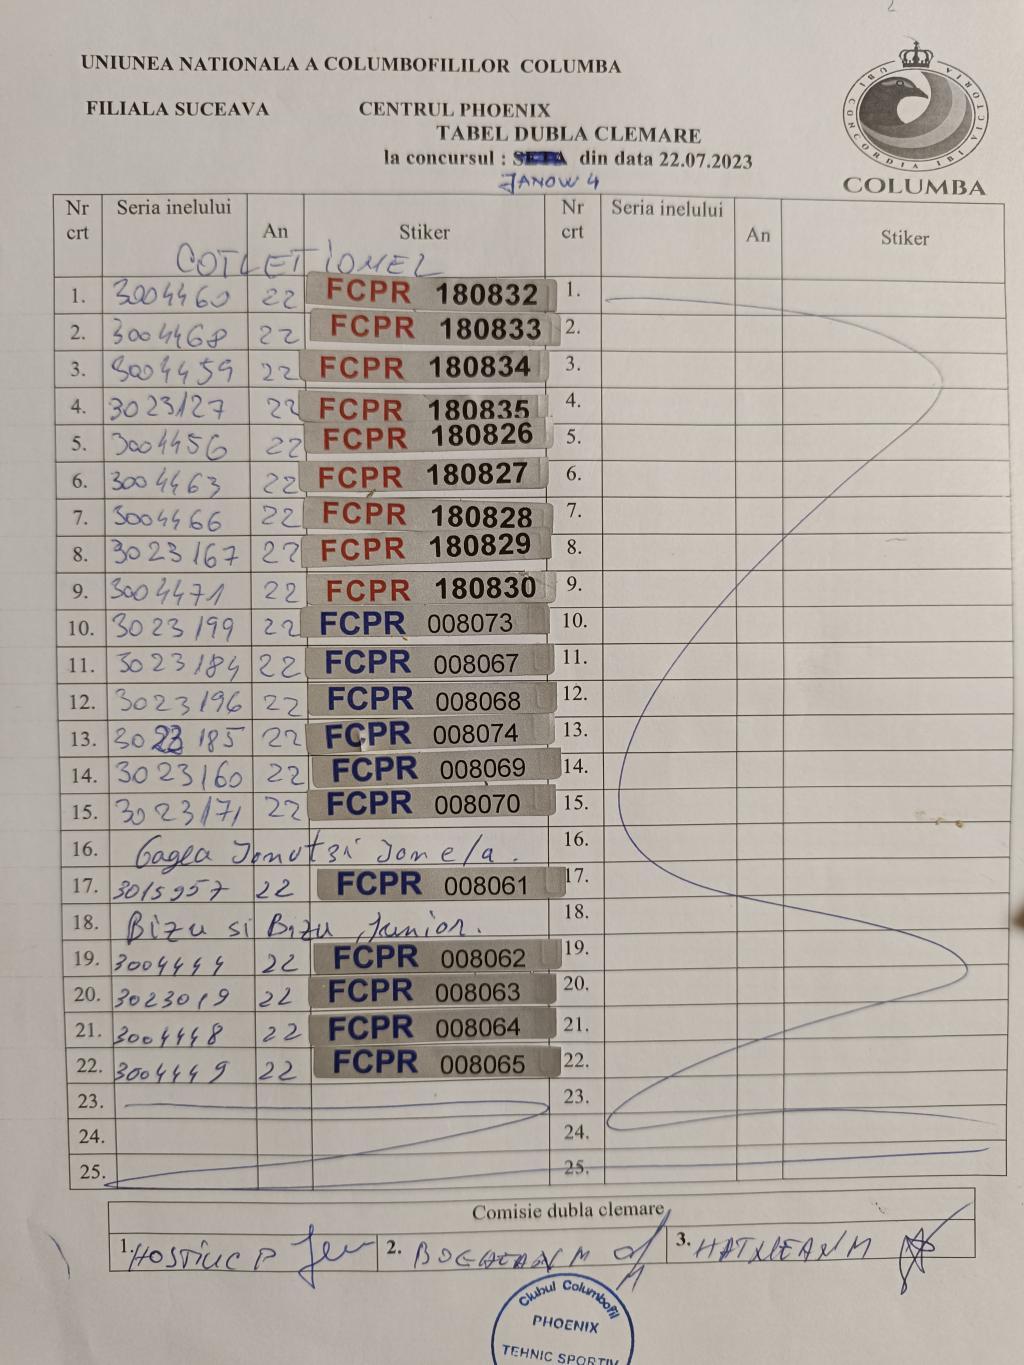 UNIUNEA NATIONALA A COLUMBOFILILOR COLUMBA
FILIALA SUCEAVA CENTRUL PHOENIX
TABEL DUBLA CLEMARE
la concursul : din data 22.07.2023
JANOW 4
UBI CONCORDIA IBI VICTORIA
COLUMBA
Nr crt Seria inelului An Stiker Nr crt Seria inelului An Stiker
COTLET IONEL
1. 3004460 22 FCPR 180832 1.
2. 3004468 22 FCPR 180833 2.
3. 3004459 22 FCPR 180834 3.
4. 3023127 22 FCPR 180835 4.
5. 3004456 22 FCPR 180826 5.
6. 3004463 22 FCPR 180827 6.
7. 3004466 22 FCPR 180828 7.
8. 3023167 22 FCPR 180829 8.
9. 3004471 22 FCPR 180830 9.
10. 3023199 22 FCPR 008073 10.
11. 3023184 22 FCPR 008067 11.
12. 3023196 22 FCPR 008068 12.
13. 3023185 22 FCPR 008074 13.
14. 3023160 22 FCPR 008069 14.
15. 3023171 22 FCPR 008070 15.
16. Gagea Ionut si Ionela. 16.
17. 3015957 22 FCPR 008061 17.
18. Bizu si Bizu Junior. 18.
19. 3004444 22 FCPR 008062 19.
20. 3023019 22 FCPR 008063 20.
21. 3004448 22 FCPR 008064 21.
22. 3004449 22 FCPR 008065 22.
23. 23.
24. 24.
25. 25.
Comisie dubla clemare
1. HOSTIUC P 2. M 3. M
Clubul Columbofil
PHOENIX
TEHNIC SPORTIV